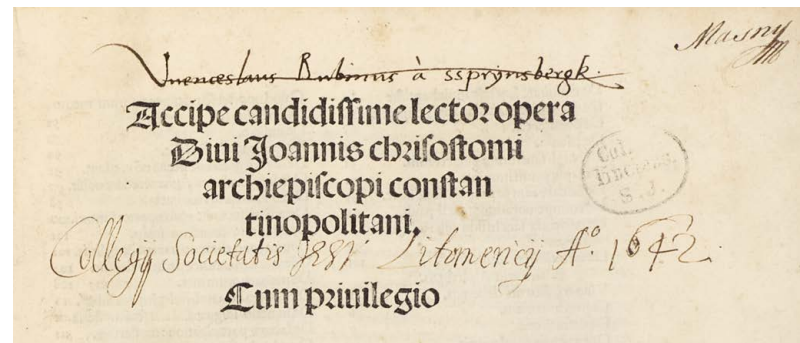 Masny
Vuenceslaus Rubinus à ssprynsbergk.
Accipe candidissime lector opera
Diui Joannis chrisostomi
archiepiscopi constan
tinopolitani.
Col.
S. J.
Collegij Societatis Jesu Litomericij Aº. 1642.
Cum priuilegio